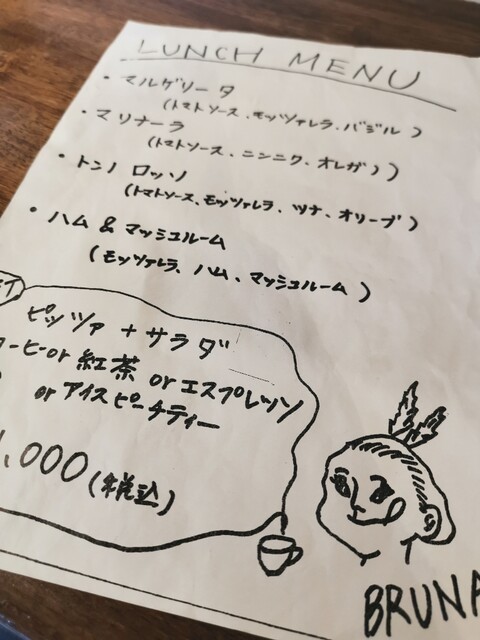 LUNCH MENU
・マルゲリータ
(トマトソース、モッツァレラ、バジル)
・マリナーラ
(トマトソース、ニンニク、オレガノ)
・トンノ ロッソ
(トマトソース、モッツァレラ、ツナ、オリーブ)
・ハム & マッシュルーム
(モッツァレラ、ハム、マッシュルーム)
ピッツァ + サラダ
ーヒー or 紅茶 or エスプレッソ
or アイスピーチティー
1.000 (税込)
BRUNA